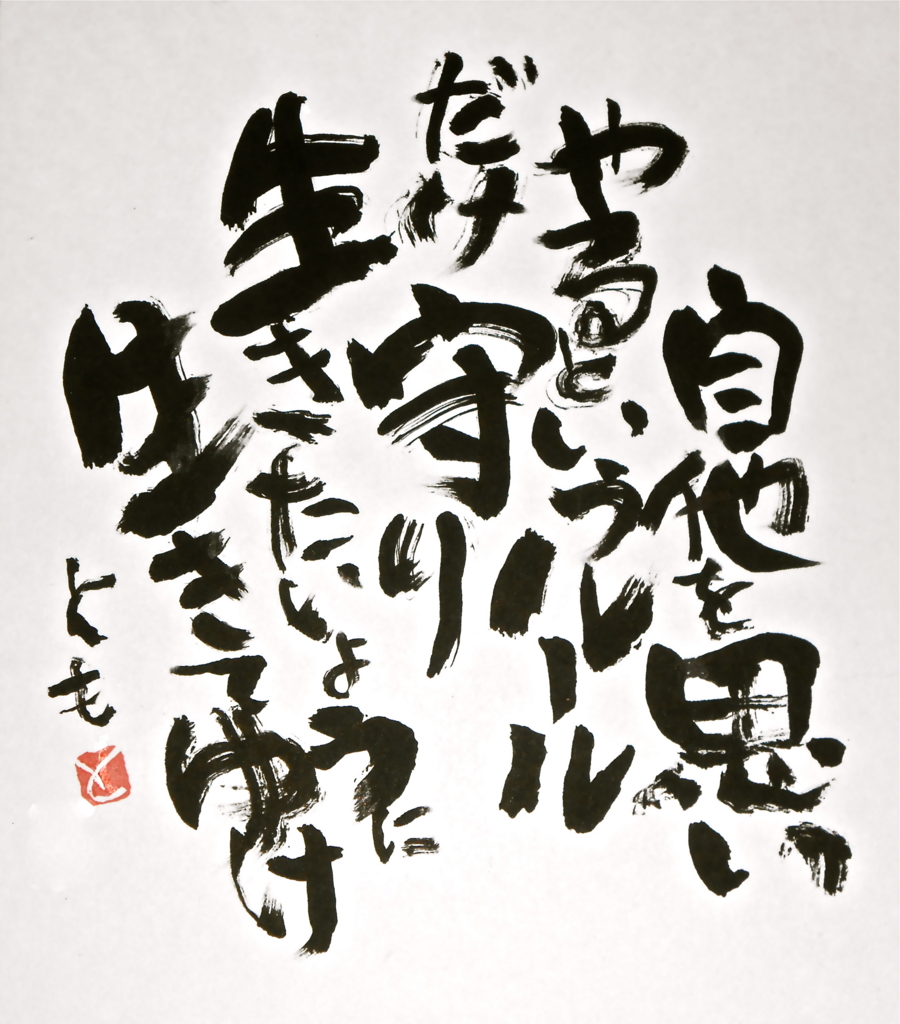 自他を思い
やるというルール
だけ守り
生きたいように
生きてゆけ
とも
と